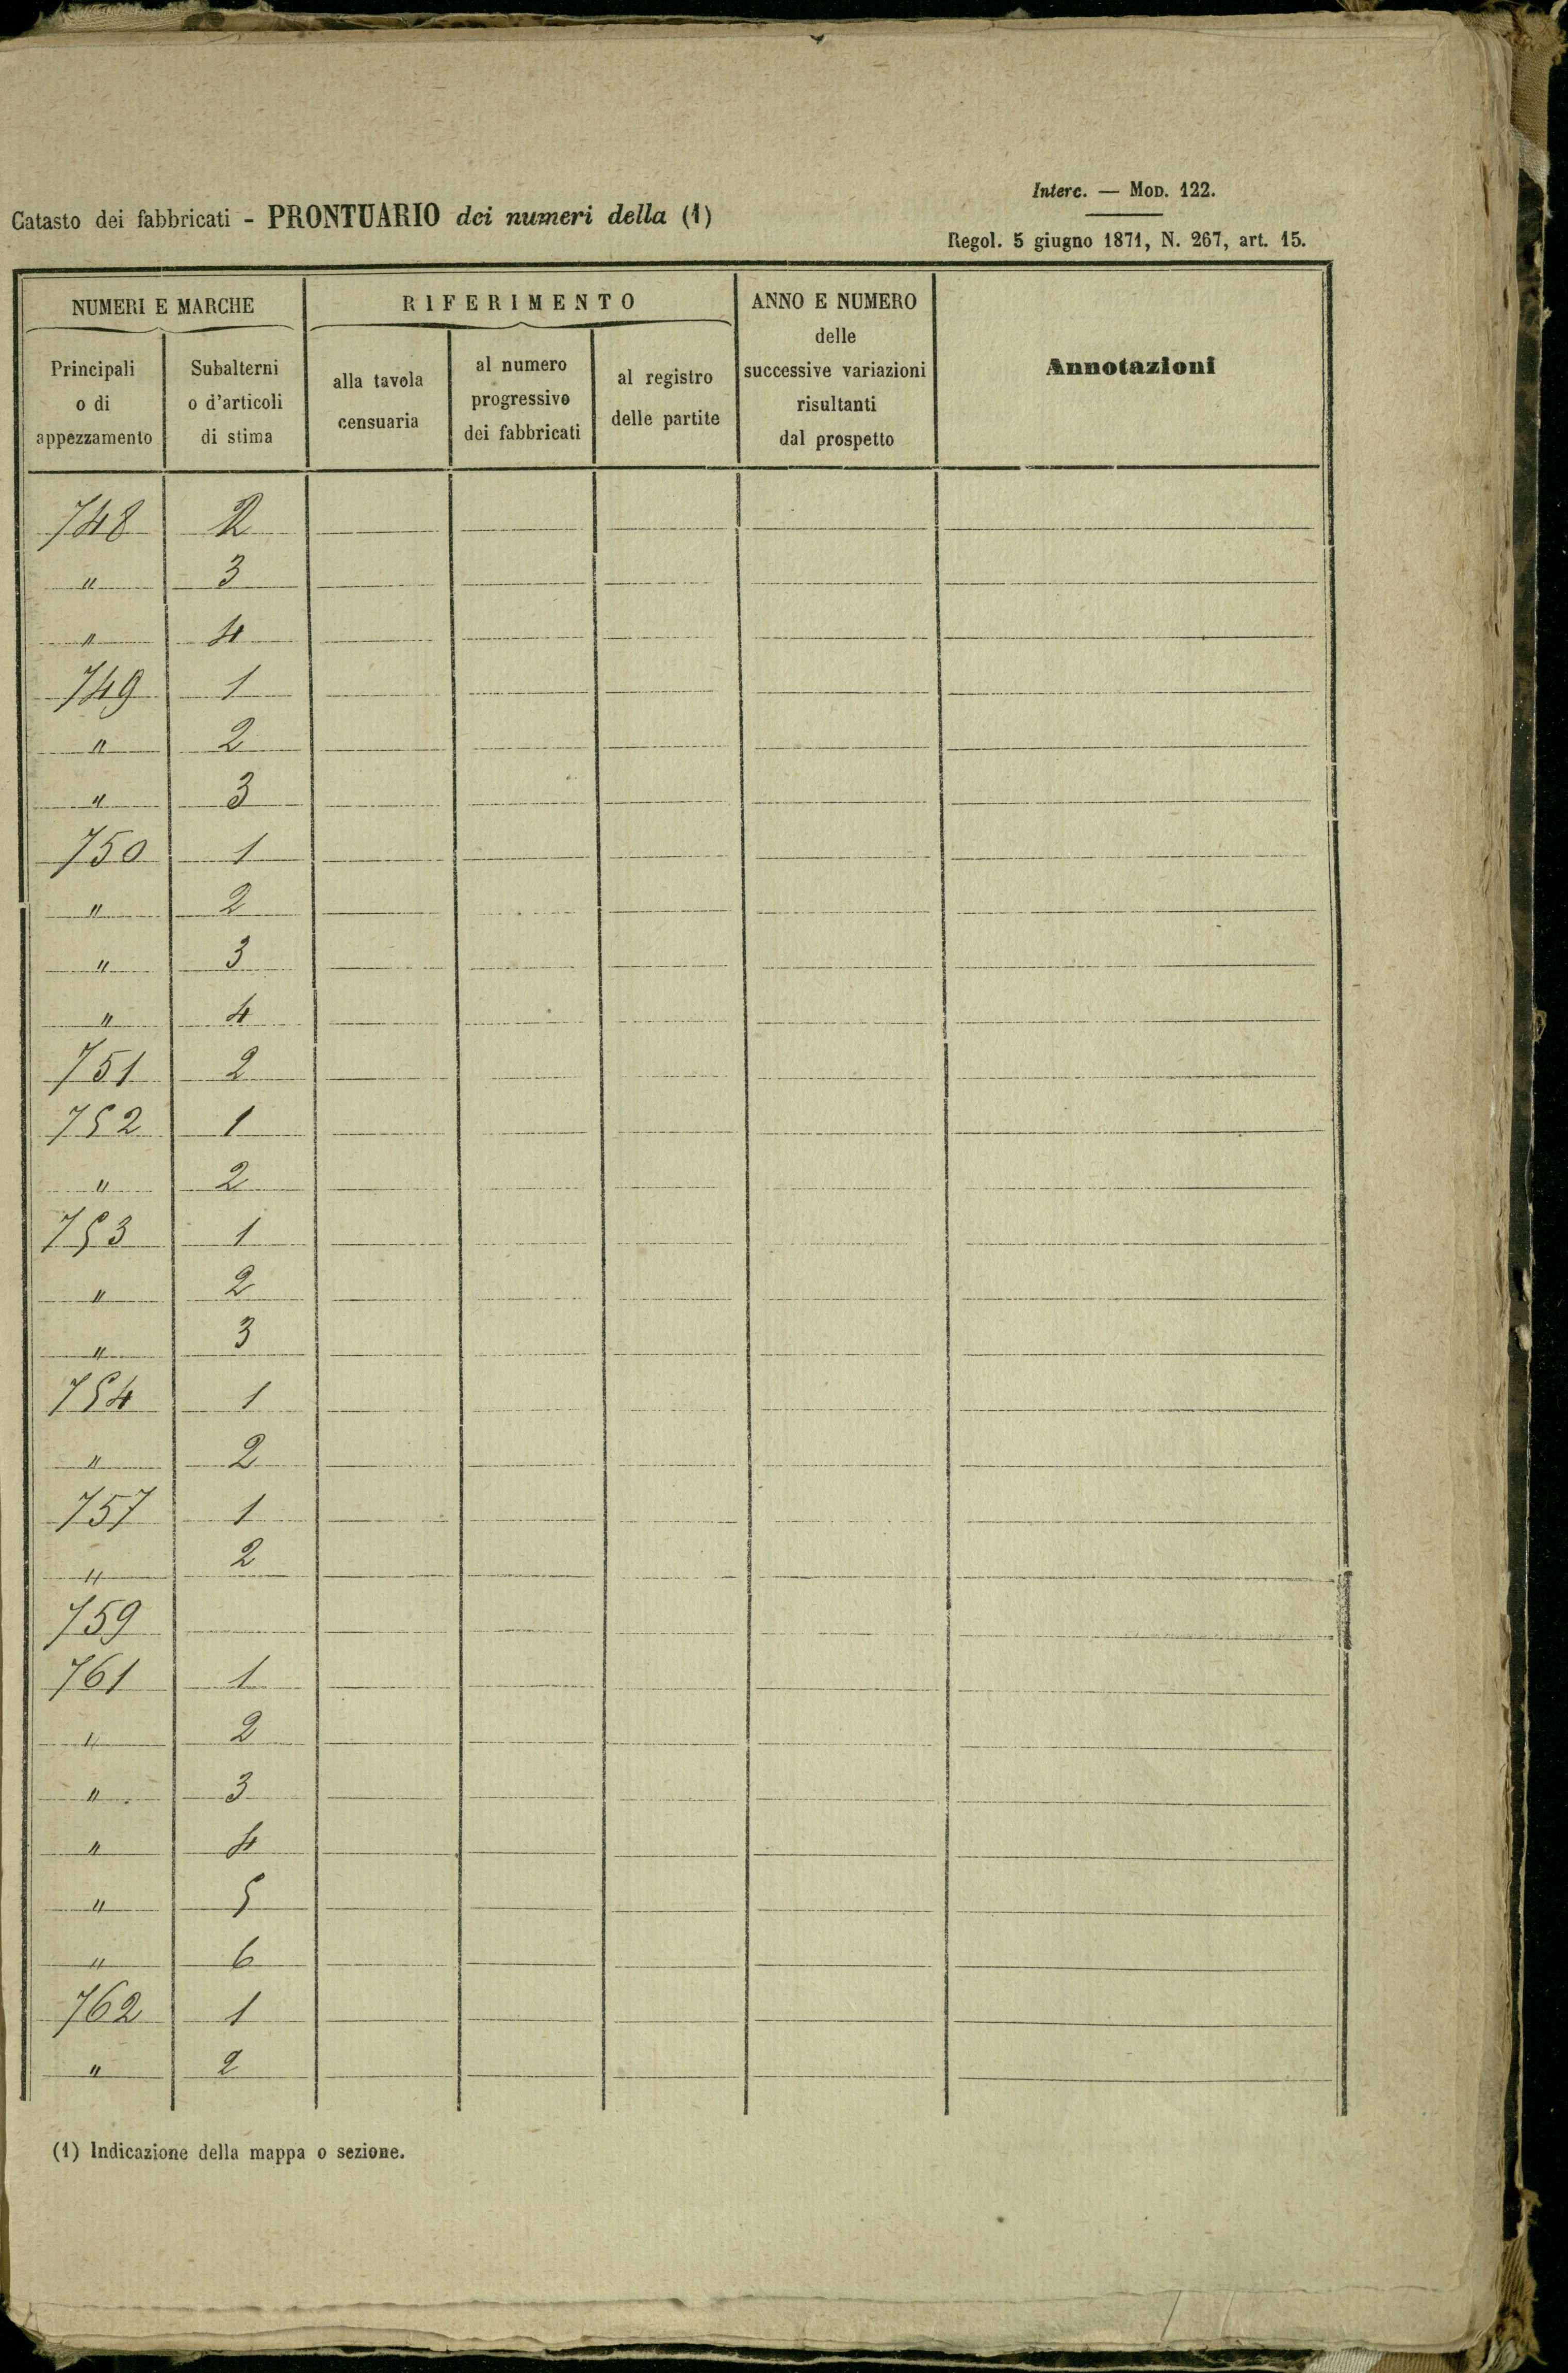 Interc. — MOD. 122.
Catasto dei fabbricati - PRONTUARIO dei numeri della (1)
Regol. 5 giugno 1871, N. 267, art. 15.
NUMERI E MARCHE
Principali
o di
appezzamento
Subalterni
o d'articoli
di stima
RIFERIMENTO
alla tavola
censuaria
al numero
progressivo
dei fabbricati
al registro
delle partite
ANNO E NUMERO
delle
successive variazioni
risultanti
dal prospetto
Annotazioni
748 2
" 3
" 4
749 1
" 2
" 3
750 1
" 2
" 3
" 4
751 2
752 1
" 2
753 1
" 2
" 3
754 1
" 2
757 1
" 2
759
761 1
" 2
" 3
" 4
" 5
" 6
762 1
" 2
(1) Indicazione della mappa o sezione.